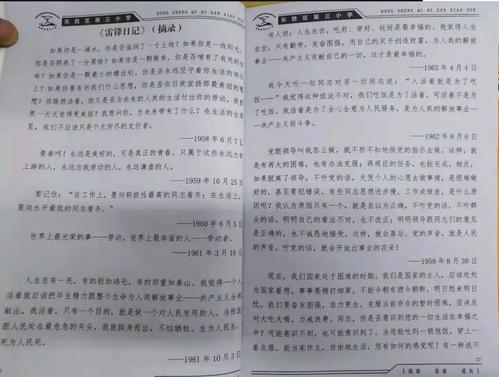 东胜区第三小学
DONG SHENG QU DI SAN XIAO XUE
《雷锋日记》（摘录）
如果你是一滴水，你是否滋润了一寸土地？如果你是一线阳光，
你是否照亮了一分黑暗？如果你是一颗粮食，你是否哺育了有用的生
命？如果你是一颗最小的螺丝钉，你是否永远坚守着你生活的岗位
上？如果你要告诉我们什么思想，你是否在日夜宣扬那最美丽的理
想？你既然活着，你又是否为未来的人类的生活付出你的劳动，使世
界一天天变得更美丽？我想问你，为未来带来了什么？在生活的仓库
里，我们不应该只是个无穷尽的支付者。
——1958 年 6 月 7 日
青春啊！永远是美好的，可是真正的青春，只属于这些永远力争
上游的人，永远忘我劳动的人，永远谦虚的人。
——1959 年 10 月 25 日
要记住：“在工作上，要向积极性最高的同志看齐；在生活上，
要向水平最低的同志看齐。
——1960 年 6 月 5 日
世界上最光荣的事——劳动，世界上最体面的人——劳动者。
——1961 年 3 月 16 日
人生总有一死，有的轻如鸿毛，有的却重如泰山。我觉得一个人
活着就应该把毕生精力跟整个生命为人类解放事业——共产主义全部
献出。我活着，只有一个目的，就是做一个对人民有用的人。当祖国
跟人民处在最危急的关头，我就挺身而出，不怕牺牲。生为人民生，
死为人民死。
——1961 年 10 月 3 日
东胜区第三小学
DONG SHENG QU DI SAN XIAO XUE
有人说：人生在世，吃好、穿好、玩好是最幸福的。我觉得人生
在世，只有勤劳，发奋图强，用自己的双手创造财富，为人类的解放
事业——共产主义贡献自己的一切，这才是最幸福的。
——1962 年 4 月 4 日
我今天听一位同志对另一位同志说：“人活着就是为了吃
饭……”我觉得这种说法不对，我们吃饭是为了活着，可活着不是为
了吃饭。我活着是为了全心全意为人民服务，是为人类的解放事业—
—共产主义而斗争。
——1962 年 8 月 6 日
党跟领导叫我怎么做，就不折不扣地按党的指示去做。这样，就
是有再大的困难，也有办法克服；再艰巨的任务，也能完成。相反，
如果脱离了领导，不听党的话，光凭个人的心愿去做事情，是很难做
好的，甚至要犯错误。有些同志思想进步慢，工作成绩差，是什么原
因呢？我认为原因只有一个，就是自以为正确，不听党的话，不听群
众的话，明明自己的看法不对，也不改正；明明领导跟同志们的意见
是正确的，也不诚恳地接受。这样，就会落后。党的声音，就是人民
的声音。听党的话，就会开放出事业的花朵！
——1959 年 8 月 30 日
现在，我们国家处于困难的时期，我们是国家的主人，应该处处
为国家着想，事事要精打细算，不能今朝有酒今朝醉，明日愁来明日
忧。我们要奋发图强，自力更生，克服当前存在的暂时困难，坚决反
对大吃大喝，力戒浪费。同志，你是否意识到您的一切生活在幸福之
中？可能意识不到，也可能意识到了。当您能吃到一顿饱饭，穿上一
套衣服，能当家作主，自由地生活，您有如何的感觉呢？有一说不
17